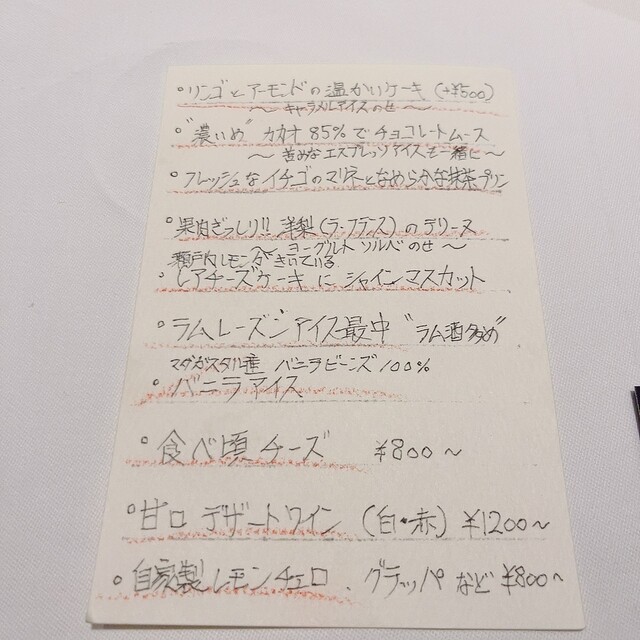 °リンゴとアーモンドの温かいケーキ (+¥500)
～キャラメルアイスのせ～
°"濃いめ" カカオ85%でチョコレートムース
～苦めなエスプレッソアイスも一緒に～
°フレッシュなイチゴのマリネとなめらかな抹茶プリン
°果肉ぎっしり!! 洋梨(ラ・フランス)のテリーヌ
～ヨーグルトソルベのせ～
瀬戸内レモンがきいている
°レアチーズケーキにシャインマスカット
°ラムレーズンアイス最中 "ラム酒多め"
マダガスカル産 バニラビーンズ100%
°バニラアイス
°食べ頃チーズ ¥800～
°甘口 デザートワイン (白・赤) ¥1200～
°自家製レモンチェロ、グラッパなど ¥800～